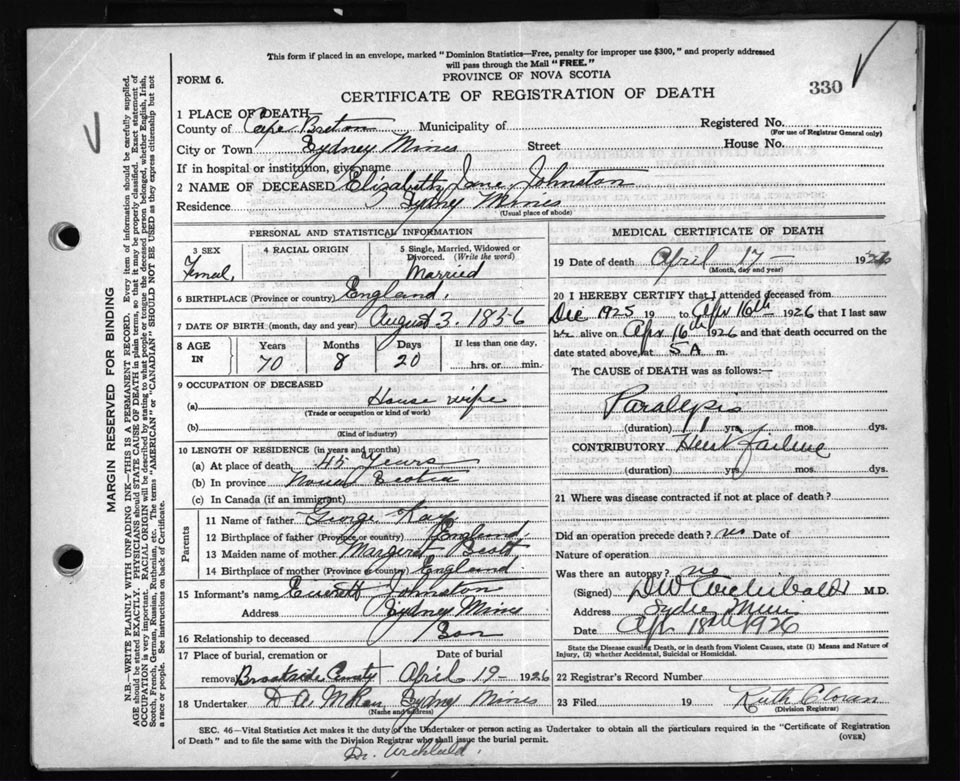 This form if placed in an envelope, marked "Dominion Statistics—Free, penalty for improper use $300," and properly addressed
will pass through the Mail "FREE."
FORM 6. PROVINCE OF NOVA SCOTIA 330
CERTIFICATE OF REGISTRATION OF DEATH
1 PLACE OF DEATH
County of Cape Breton Municipality of Registered No.
(For use of Registrar General only)
City or Town Sydney Mines Street House No.
If in hospital or institution, give name
2 NAME OF DECEASED Elizabeth Jane Johnston
Residence Sydney Mines
(Usual place of abode)
PERSONAL AND STATISTICAL INFORMATION
3 SEX 4 RACIAL ORIGIN 5 Single, Married, Widowed or
Divorced. (Write the word)
Femal, Married
6 BIRTHPLACE (Province or country) England.
7 DATE OF BIRTH (month, day and year) August 3. 1856
8 AGE IN Years Months Days If less than one day,
70 8 20 hrs. or min.
9 OCCUPATION OF DECEASED
(a) House wife
(Trade or occupation or kind of work)
(b)
(Kind of industry)
10 LENGTH OF RESIDENCE (in years and months)
(a) At place of death, 45 Years
(b) In province Nova Scotia
(c) In Canada (if an immigrant)
Parents
11 Name of father George Kay
12 Birthplace of father (Province or country) England
13 Maiden name of mother Margaret
14 Birthplace of mother (Province or country) England
15 Informant's name Everett Johnston
Address Sydney Mines
16 Relationship to deceased Son
17 Place of burial, cremation or Date of burial
removal Brookside April 19 - 1926
18 Undertaker D A Sydney Mines
(Name and address)
MEDICAL CERTIFICATE OF DEATH
19 Date of death April 17 — 1926
(Month, day and year)
20 I HEREBY CERTIFY that I attended deceased from
Dec 1925 19 to Apr 16th 1926 that I last saw
her alive on Apr 16th 1926 and that death occurred on the
date stated above, at 5 A m.
The CAUSE of DEATH was as follows:—
Paralysis
(duration) yrs. mos. dys.
CONTRIBUTORY Heart failure
(duration) yrs. mos. dys.
21 Where was disease contracted if not at place of death?
Did an operation precede death? no Date of
Nature of operation
Was there an autopsy? no
(Signed) DW Archibald M.D.
Address Sydney Mines
Date Apr 18th 1926
State the Disease causing Death, or in death from Violent Causes, state (1) Means and Nature of
Injury, (2) whether Accidental, Suicidal or Homicidal.
22 Registrar's Record Number
23 Filed 19 Ruth
(Division Registrar)
SEC. 46—Vital Statistics Act makes it the duty of the Undertaker or person acting as Undertaker to obtain all the particulars required in the "Certificate of Registration
of Death" and to file the same with the Division Registrar who shall issue the burial permit. (OVER)
Dr. Archibald.
MARGIN RESERVED FOR BINDING
N.B.—WRITE PLAINLY WITH UNFADING INK—THIS IS A PERMANENT RECORD. Every item of information should be carefully supplied.
AGE should be stated EXACTLY. PHYSICIANS should STATE CAUSE OF DEATH in plain terms, so that it may be properly classified. Exact statement of
OCCUPATION is very important. RACIAL ORIGIN will be described by stating to what people or tongue the deceased person belonged, whether English, Irish,
Scotch, French, German, Russian, Ruthenian, etc. The terms "AMERICAN" or "CANADIAN" SHOULD NOT BE USED as they express citizenship but not
a race or people. See instructions on back of Certificate.